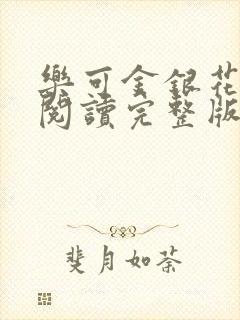 樂可金銀花
閱讀完整版
斐月如荼